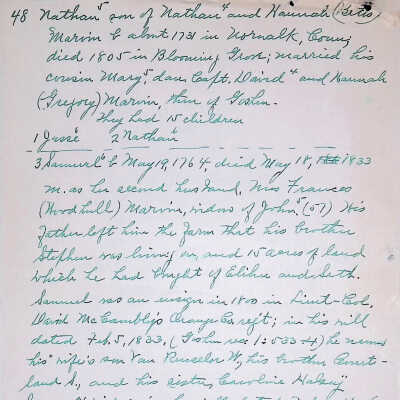 48 Nathan⁵ son of Nathan⁴ and Hannah (Betts)
Marvin b abnt 1731 in Norwalk, Conn;
died 1805 in Blooming Grove; married his
cousin Mary⁵, dau Capt. David⁴ and Hannah
(Gregory) Marvin, then of Goshen.
They had 15 children
1 Jesse⁶ 2 Nathan⁶
3 Samuel⁶ b May 19, 1764, died May 18, 1833
m. as her second husband, Mrs Frances
(Woodhull) Marvin, widow of John⁵ (57) His
father left him the farm that his brother
Stephen was living on, and 15 acres of land
which he had bought of Elihu and Seth.
Samuel was an ensign in 1800 in Lieut-Col.
David McCambly's Orange Co. regt; in his will
dated Feb. 5, 1833, (Goshen rec 1:533+4) he names
his wife's son Van Renselor W, his brother Court-
land S., and his sister, Caroline Halsey